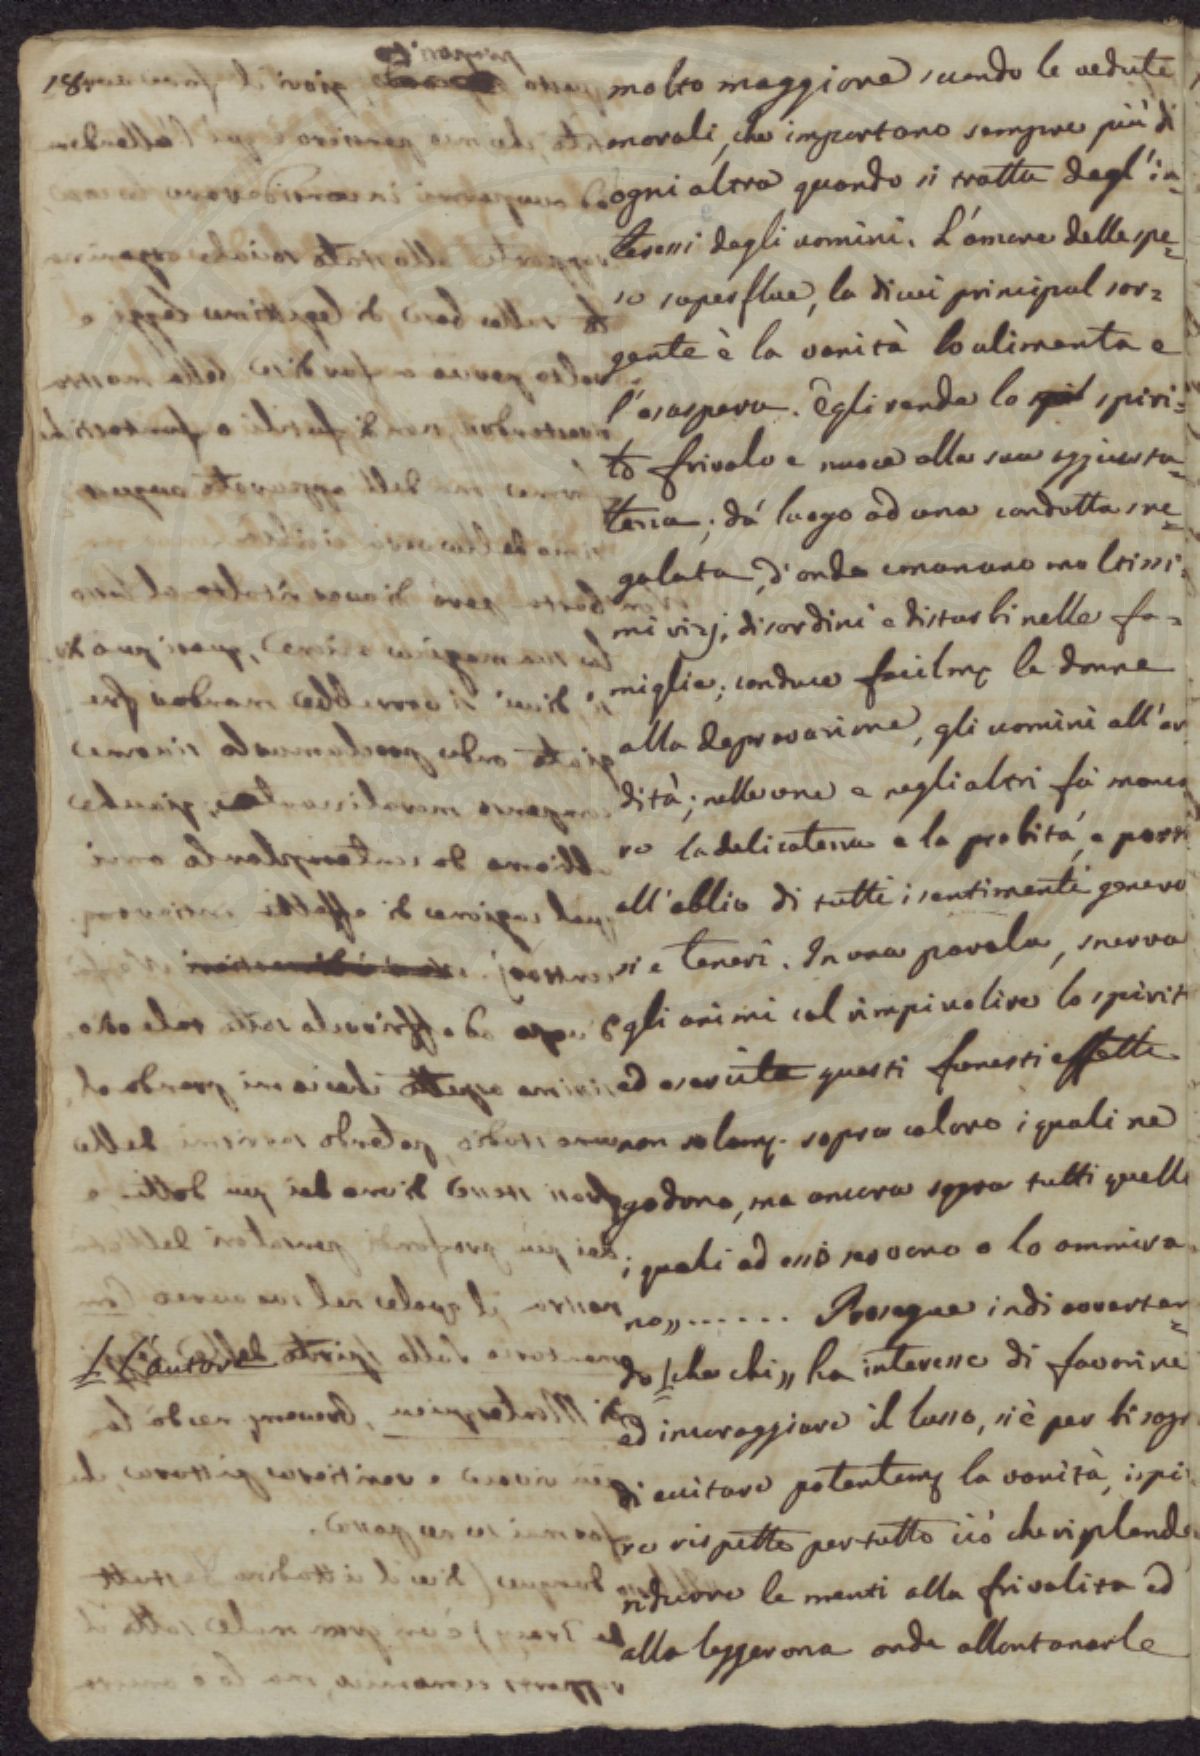 184
molto maggiore secondo le vedute
morali, che importano sempre più di
ogni altra quando si tratta degl'in=
teressi degli uomini. L'amore delle spe=
se superflue, la di cui principal sor=
gente è la vanità lo alimenta e
l'esaspera. Egli rende lo spiri=
to frivolo e nuoce alla sua aggiusta=
tezza; dà luogo ad una condotta sre=
golata, d'onde emanano moltissi=
mi vizj, disordini e disturbi nelle fa=
miglie; conduce facilmẽ le donne
alla depravazione, gli uomini all'avi
dità; nelle une e negli altri fà manca
re la delicatezza e la probità, e porta
all'oblio di tutti i sentimenti genero
si e teneri. In una parola, snerva
gli animi col rimpicolire lo spirit
ed esercita questi funesti effetti
non solamẽ. sopra coloro i quali ne
godono, ma ancora sopra tutti quelli
i quali ad essi servono o lo ammira=
no„...... Prosegue indi avverten=
L'autore
do che chi„ ha interesse di favorire
ed incoraggiare il lusso, si è per bisogn
di eccitare potentemẽ la vanità, ispi
re rispetto per tutto ciò che risplende
ridurre le menti alla frivolità ed
alla leggerezza onde allontanarle